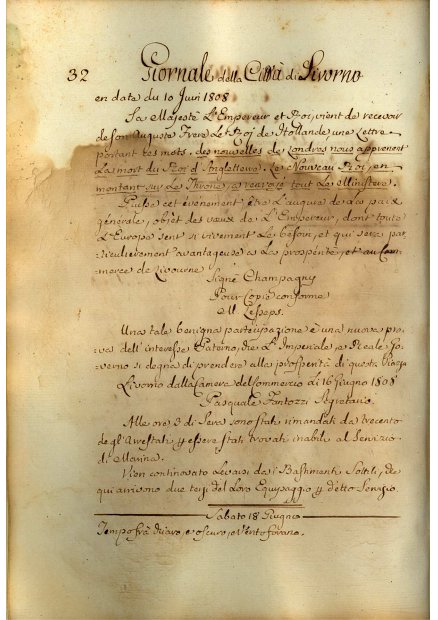 32
Giornale della Città di Livorno
en date du 10 Juin 1808
Sa Majesté L'Empereur et Roi, vient de recevoir
de son Auguste Frere Le Roi de Hollande une Lettre
portant ces mots, des nouvelles de Londres nous apprennent
La mort du Roi d'Angleterre. Le Nouveau Roi, en
montant sur Le Throne, a renvoyé tout Le Ministere.
Puisse cet évènement être L'augure de la paix
générale, objet des vœux de L'Empereur, dont toute
L'Europe sent si vivement Le besoin, et qui sera par
=ticulierement avantageuse a La prosperité, et au Com
=merce de Livourne
Signé Champagny
Pour Copie conforme
M. Lesseps.
Una tale benigna partecipazione è una nuova pro
=va dell'interesse Paterno, che L'Imperiale e Reale Go
=verno si degna di prendere alla prosperità di questa Piazza
Livorno dalla Camera del Commercio di 16 Giugno 1808
Pasquale Fantozzi Segretario
Alle ore 3 di Sera sono stati rimandati da trecento
degl'Arrestati p essere stati trovati inabili al Servizio
di Marina.
Vien continovato Levarsi da i Bastimenti Sottili, che
qui arrivono due terzi del Loro Equipaggio p detto Servizio
Sabato 18 Giugno
Tempo frà chiaro, e oscuro, e Vento forano.